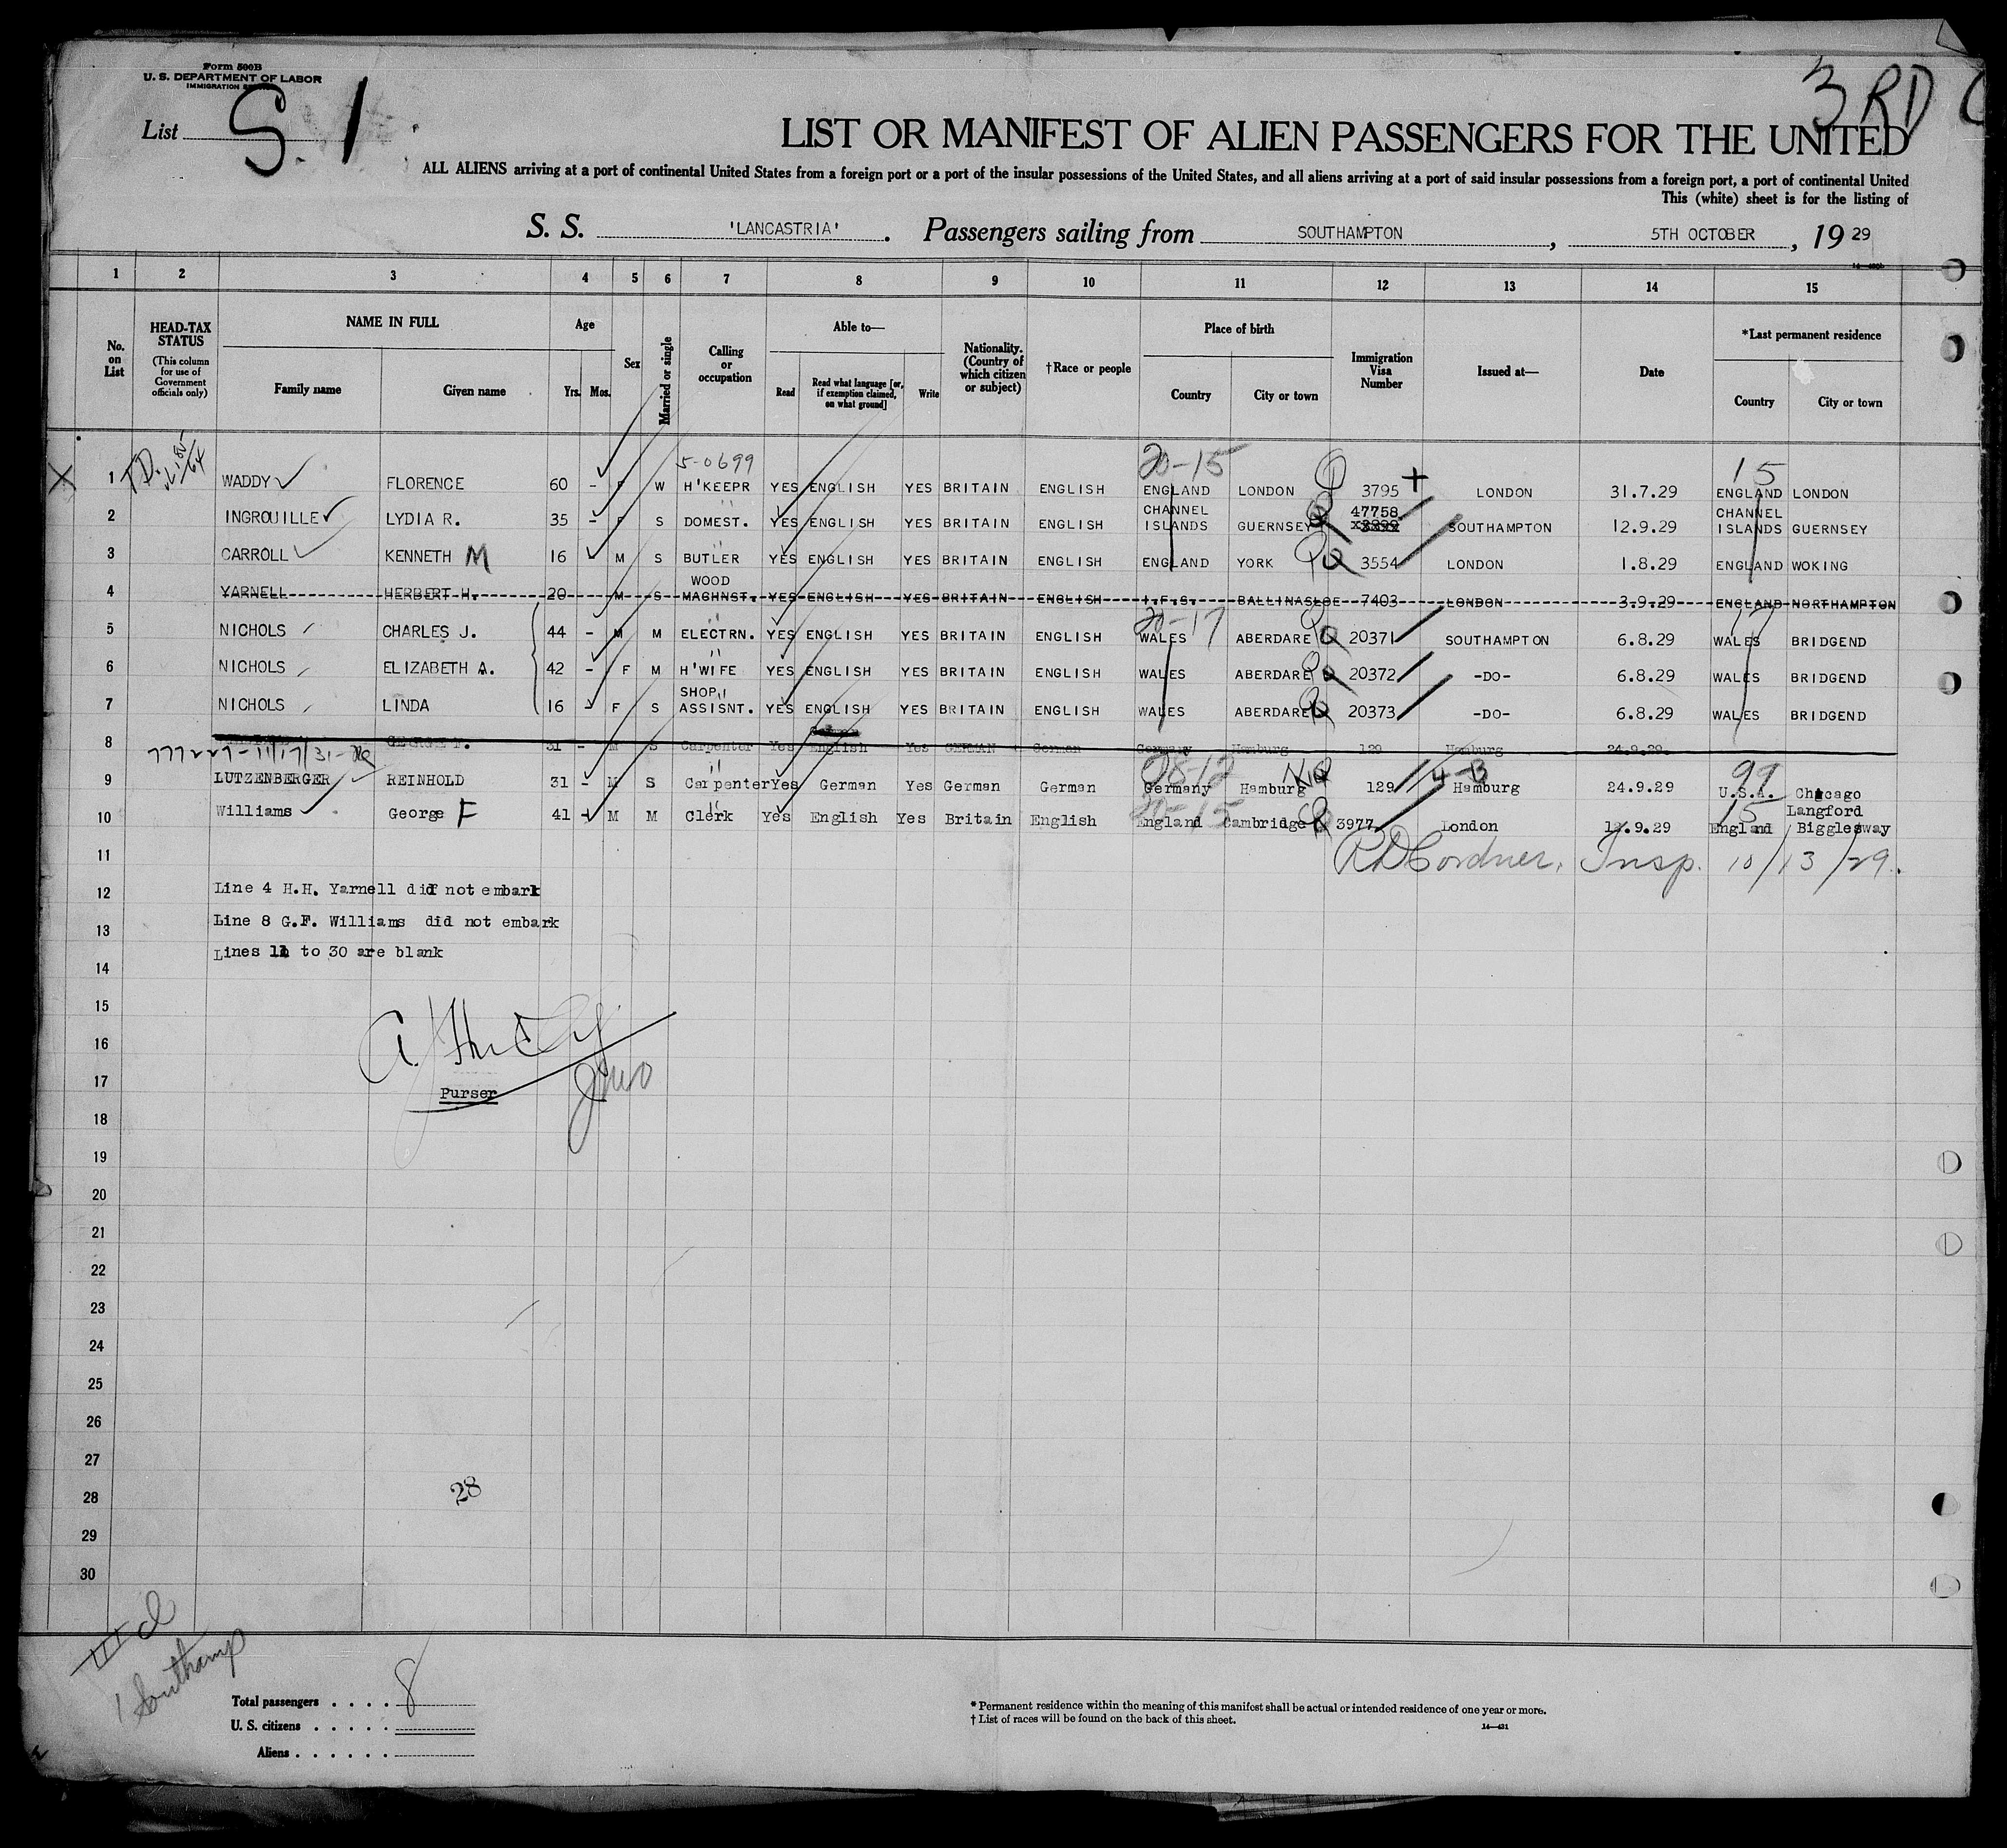 Form 500B
U. S. DEPARTMENT OF LABOR
IMMIGRATION SERVICE
3 RD C
List S. 1
LIST OR MANIFEST OF ALIEN PASSENGERS FOR THE UNITED
ALL ALIENS arriving at a port of continental United States from a foreign port or a port of the insular possessions of the United States, and all aliens arriving at a port of said insular possessions from a foreign port, a port of continental United
This (white) sheet is for the listing of
S. S. 'LANCASTRIA' . Passengers sailing from SOUTHAMPTON , 5TH OCTOBER , 19 29
1 2 3 4 5 6 7 8 9 10 11 12 13 14 15
No. on List
HEAD-TAX STATUS (This column for use of Government officials only)
NAME IN FULL Family name Given name
Age Yrs. Mos.
Sex
Married or single
Calling or occupation
Able to— Read Read what language [or, if exemption claimed, on what ground] Write
Nationality. (Country of which citizen or subject)
†Race or people
Place of birth Country City or town
Immigration Visa Number
Issued at—
Date
*Last permanent residence Country City or town
5-0699 20-15 15
1 WADDY FLORENCE 60 - F W H'KEEPR YES ENGLISH YES BRITAIN ENGLISH ENGLAND LONDON 3795 LONDON 31.7.29 ENGLAND LONDON
2 INGROUILLE LYDIA R. 35 - F S DOMEST. YES ENGLISH YES BRITAIN ENGLISH CHANNEL ISLANDS GUERNSEY 47758 SOUTHAMPTON 12.9.29 CHANNEL ISLANDS GUERNSEY
3 CARROLL KENNETH M 16 M S BUTLER YES ENGLISH YES BRITAIN ENGLISH ENGLAND YORK 3554 LONDON 1.8.29 ENGLAND WOKING
4 YARNELL HERBERT H. 20 M S WOOD MACHNST. YES ENGLISH YES BRITAIN ENGLISH I.F.S. BALLINASLOE 7403 LONDON 3.9.29 ENGLAND NORTHAMPTON
20-17 17
5 NICHOLS CHARLES J. 44 - M M ELECTRN. YES ENGLISH YES BRITAIN ENGLISH WALES ABERDARE 20371 SOUTHAMPTON 6.8.29 WALES BRIDGEND
6 NICHOLS ELIZABETH A. 42 - F M H'WIFE YES ENGLISH YES BRITAIN ENGLISH WALES ABERDARE 20372 -DO- 6.8.29 WALES BRIDGEND
7 NICHOLS LINDA 16 - F S SHOP ASSISNT. YES ENGLISH YES BRITAIN ENGLISH WALES ABERDARE 20373 -DO- 6.8.29 WALES BRIDGEND
8 GEORGE F. 31 - M S Carpenter Yes English Yes GERMAN German Germany Hamburg 129 Hamburg 24.9.29
28-12 4-B 99
9 LUTZENBERGER REINHOLD 31 - M S Carpenter Yes German Yes German German Germany Hamburg 129 Hamburg 24.9.29 U.S.A. Chicago
20-15 15
10 Williams George F 41 - M M Clerk Yes English Yes Britain English England Cambridge 3977 London 12.9.29 England Langford Bigglesway
11 Insp. 10/13/29.
12 Line 4 H.H. Yarnell did not embark
13 Line 8 G.F. Williams did not embark
Lines 11 to 30 are blank
14
15
16
17 Purser
18
19
20
21
22
23
24
25
26
27
28 28
29
30
III cl
Southamp
Total passengers . . . . 8
U. S. citizens . . . . .
Aliens . . . . . .
* Permanent residence within the meaning of this manifest shall be actual or intended residence of one year or more.
† List of races will be found on the back of this sheet.